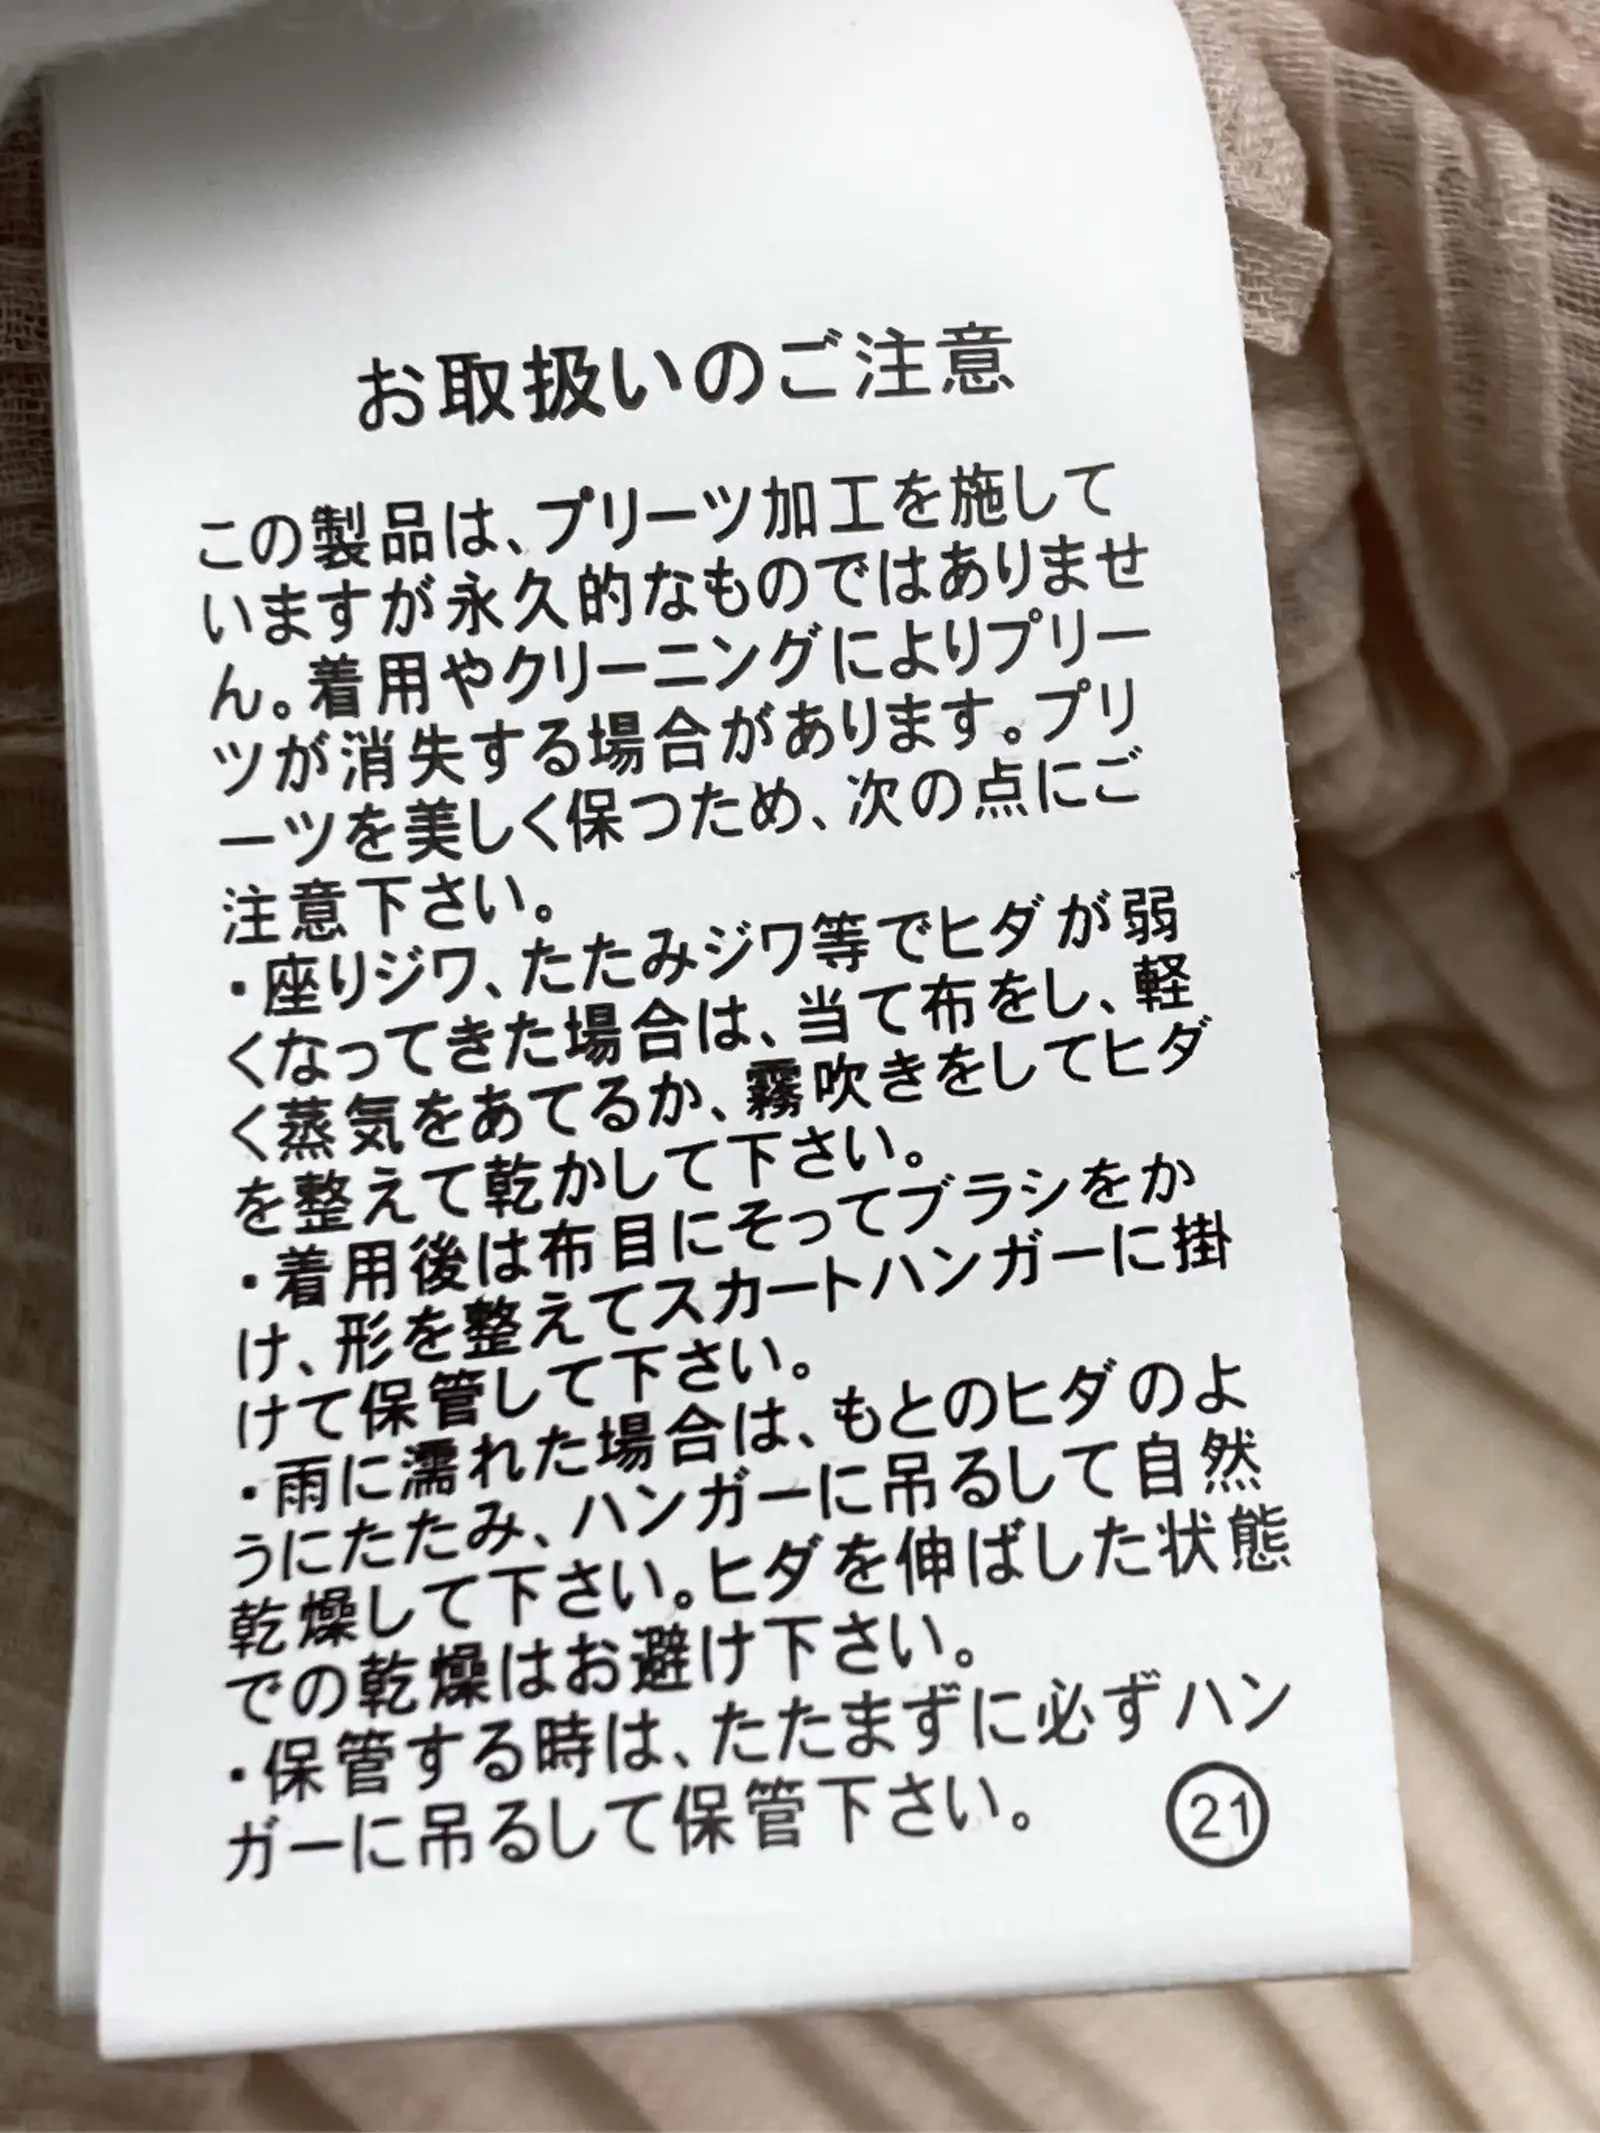 お取扱いのご注意
この製品は、プリーツ加工を施して
いますが永久的なものではありませ
ん。着用やクリーニングによりプリー
ツが消失する場合があります。プリ
ーツを美しく保つため、次の点にご
注意下さい。
・座りジワ、たたみジワ等でヒダが弱
くなってきた場合は、当て布をし、軽
く蒸気をあてるか、霧吹きをしてヒダ
を整えて乾かして下さい。
・着用後は布目にそってブラシをか
け、形を整えてスカートハンガーに掛
けて保管して下さい。
・雨に濡れた場合は、もとのヒダのよ
うにたたみ、ハンガーに吊るして自然
乾燥して下さい。ヒダを伸ばした状態
での乾燥はお避け下さい。
・保管する時は、たたまずに必ずハン
ガーに吊るして保管下さい。
㉑